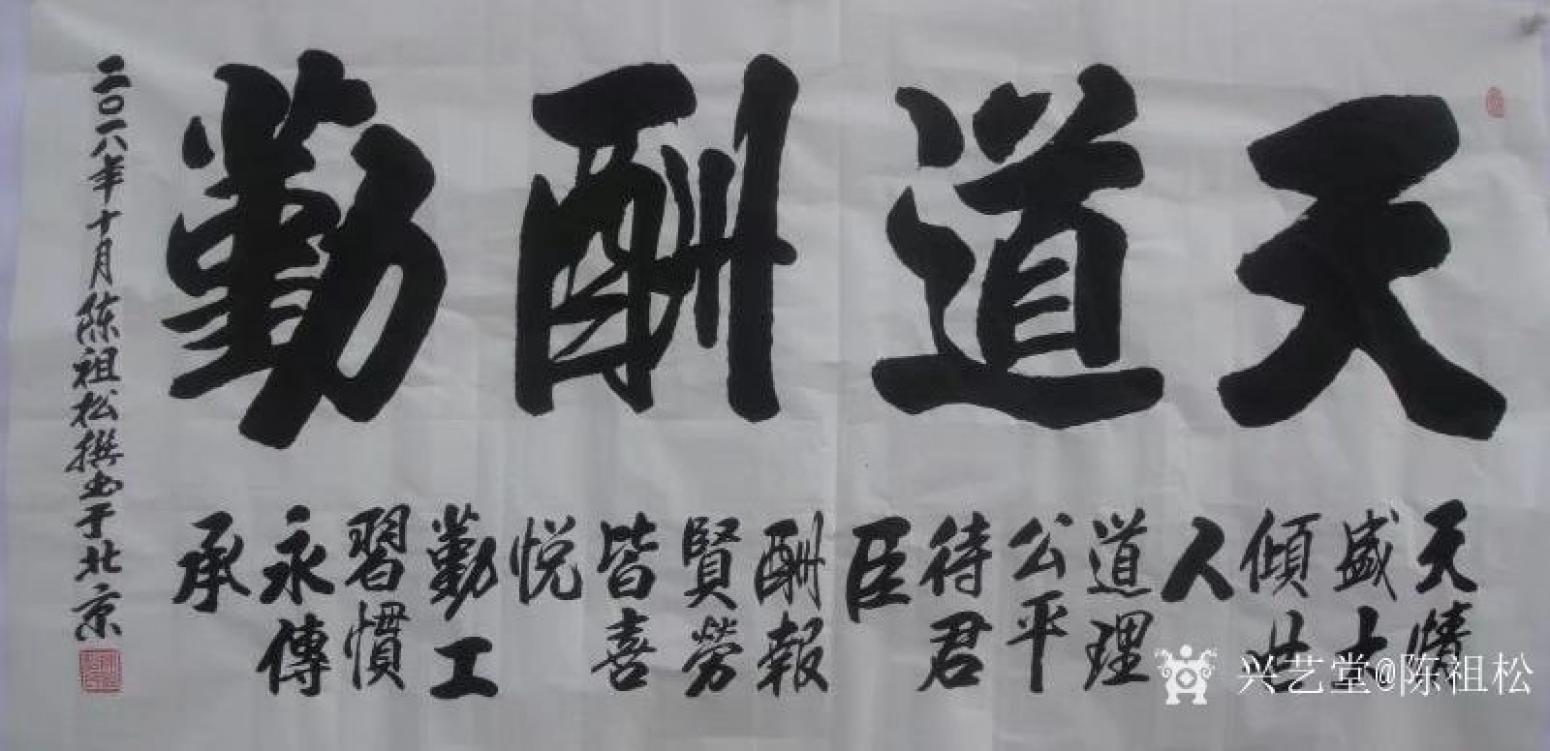 天道酬勤
天情
盛大
傾世
人
道理
公平
待君
臣
酬報
賢勞
皆喜
悦
勤工
習慣
永傳
承
二〇一八年十月陈祖松撰书于北京
兴艺堂@陈祖松